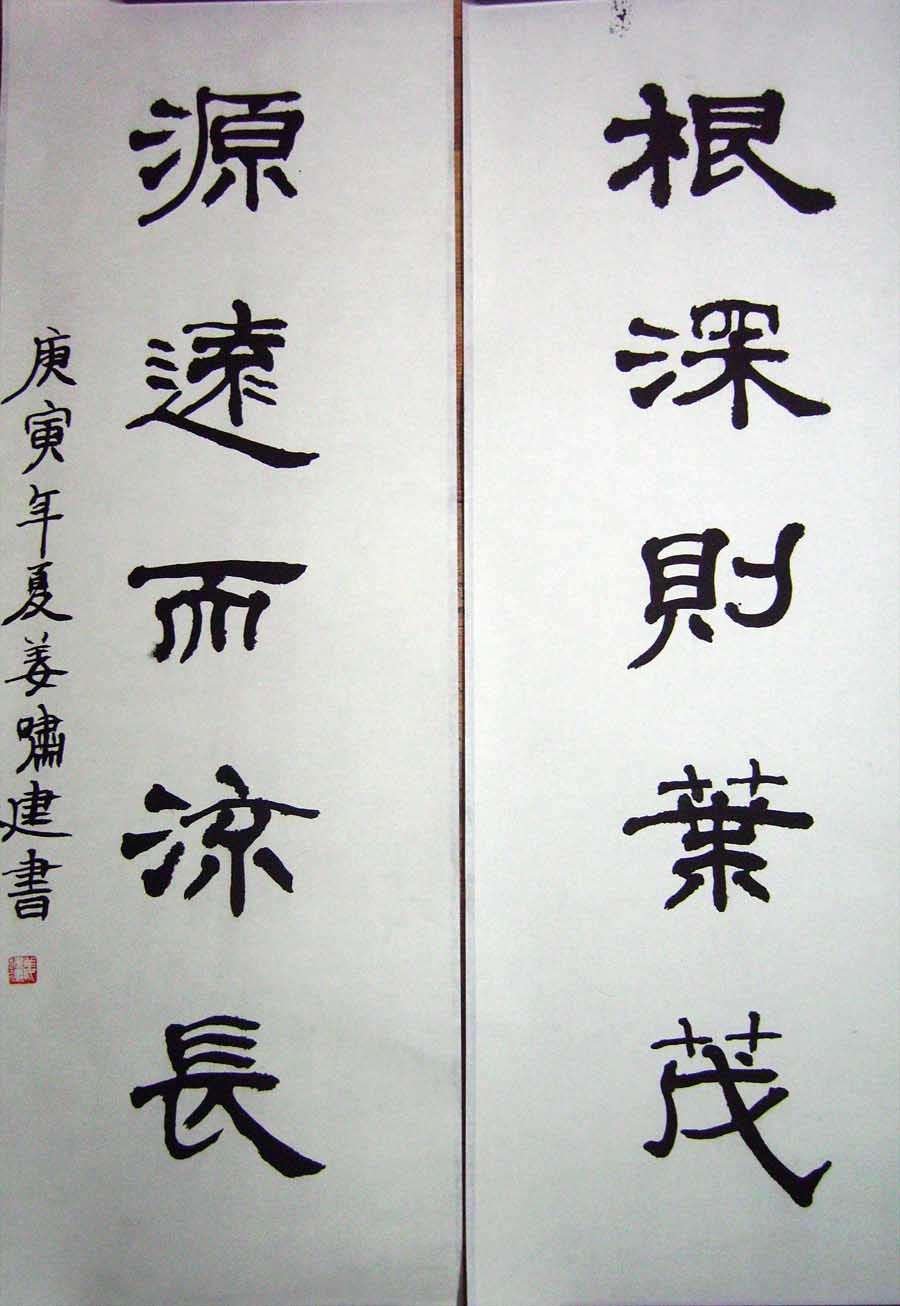 根深則葉茂
源遠而流長
庚寅年夏姜嘯建書